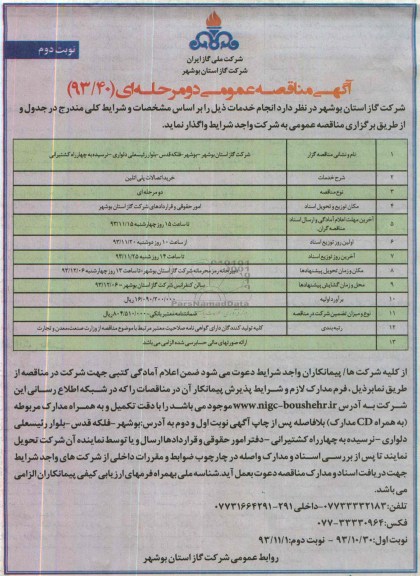 نوبت دوم
شرکت ملی گاز ایران
شرکت گاز استان بوشهر
آگهی مناقصه عمومی دو مرحله‌ای (۹۳/۴۰)
شرکت گاز استان بوشهر در نظر دارد انجام خدمات ذیل را بر اساس مشخصات و شرایط کلی مندرج در جدول و
از طریق برگزاری مناقصه عمومی به شرکت واجد شرایط واگذار نماید.
۱ نام و نشانی مناقصه گزار شرکت گاز استان بوشهر - بوشهر- فلکه قدس - بلوار رئیسعلی دلواری - نرسیده به چهارراه کشتیرانی
۲ شرح خدمات خرید اتصالات پلی اتیلن
۳ نوع مناقصه دو مرحله ای
۴ مکان توزیع و تحویل اسناد امور حقوقی و قراردادهای شرکت گاز استان بوشهر
۵ آخرین مهلت اعلام آمادگی و ارسال اسناد مناقصه گران. تا ساعت ۱۵ روز چهارشنبه ۹۳/۱۱/۱۵
۶ اولین روز توزیع اسناد از ساعت ۱۰ روز دوشنبه ۹۳/۱۱/۲۰
۷ آخرین روز توزیع اسناد تا ساعت ۱۴ روز ۹۳/۱۱/۲۵
۸ مکان و زمان تحویل پیشنهادها دبیرخانه محرمانه شرکت گاز استان بوشهر - تا ساعت ۱۲ روز چهارشنبه ۹۳/۱۲/۰۶
۹ محل و زمان گشایش پیشنهادها سالن کنفرانس شرکت گاز استان بوشهر - ۹۳/۱۲/۰۶
۱۰ برآورد اولیه ریال
۱۱ نوع و میزان تضمین شرکت در مناقصه ضمانتنامه معتبر بانکی ریال
۱۲ رتبه بندی کلیه تولید کنندگان دارای گواهی نامه صلاحیت معتبر مرتبط با موضوع مناقصه از وزارت صنعت، معدن و تجارت
۱۳ ارائه صورتهای مالی حسابرسی شده الزامی می باشد
ParsNamadData
از کلیه شرکت ها / پیمانکاران واجد شرایط دعوت می شود ضمن اعلام آمادگی کتبی جهت شرکت در مناقصه از
طریق نمابر ذیل، فرم مدارک لازم و شرایط پذیرش پیمانکار آن در مناقصات را که در شبکه اطلاع رسانی این
شرکت به آدرس www.nigc-boushehr.ir موجود می باشد را با دقت تکمیل و به همراه مدارک مربوطه
(به همراه CD مدارک) بلافاصله پس از چاپ آگهی نوبت اول و دوم به آدرس: بوشهر - فلکه قدس - بلوار رئیسعلی
دلواری - نرسیده به چهارراه کشتیرانی - دفتر امور حقوقی و قراردادها ارسال و یا توسط نماینده آن شرکت تحویل
نمایند تا پس از بررسی اسناد و مدارک واصله در چارچوب ضوابط و مقررات داخلی از شرکت های واجد شرایط
جهت دریافت اسناد و مدارک مناقصه دعوت بعمل آید. شناسه ملی بهمراه فرمهای ارزیابی کیفی پیمانکاران الزامی
می باشد.
تلفن: ۰۷۷۳۳۳۳۲۱۸۳ - داخلی ۲۹۱ - ۰۷۷۳۱۶۶۴۲۹۱
فکس: ۳۳۳۳۰۹۶۴ - ۰۷۷
نوبت اول: ۹۳/۱۰/۳۰ - نوبت دوم: ۹۳/۱۱/۱
روابط عمومی شرکت گاز استان بوشهر